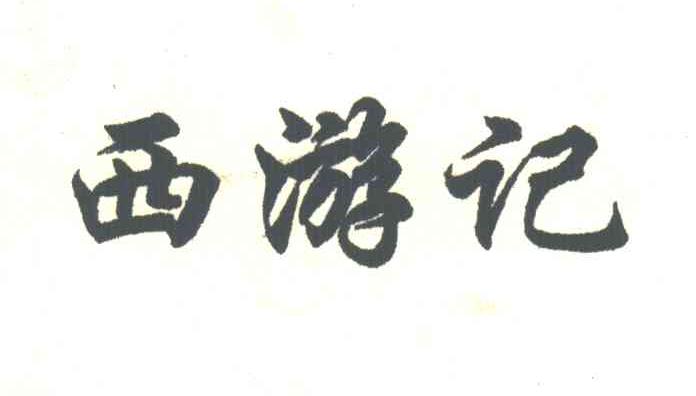 西游记